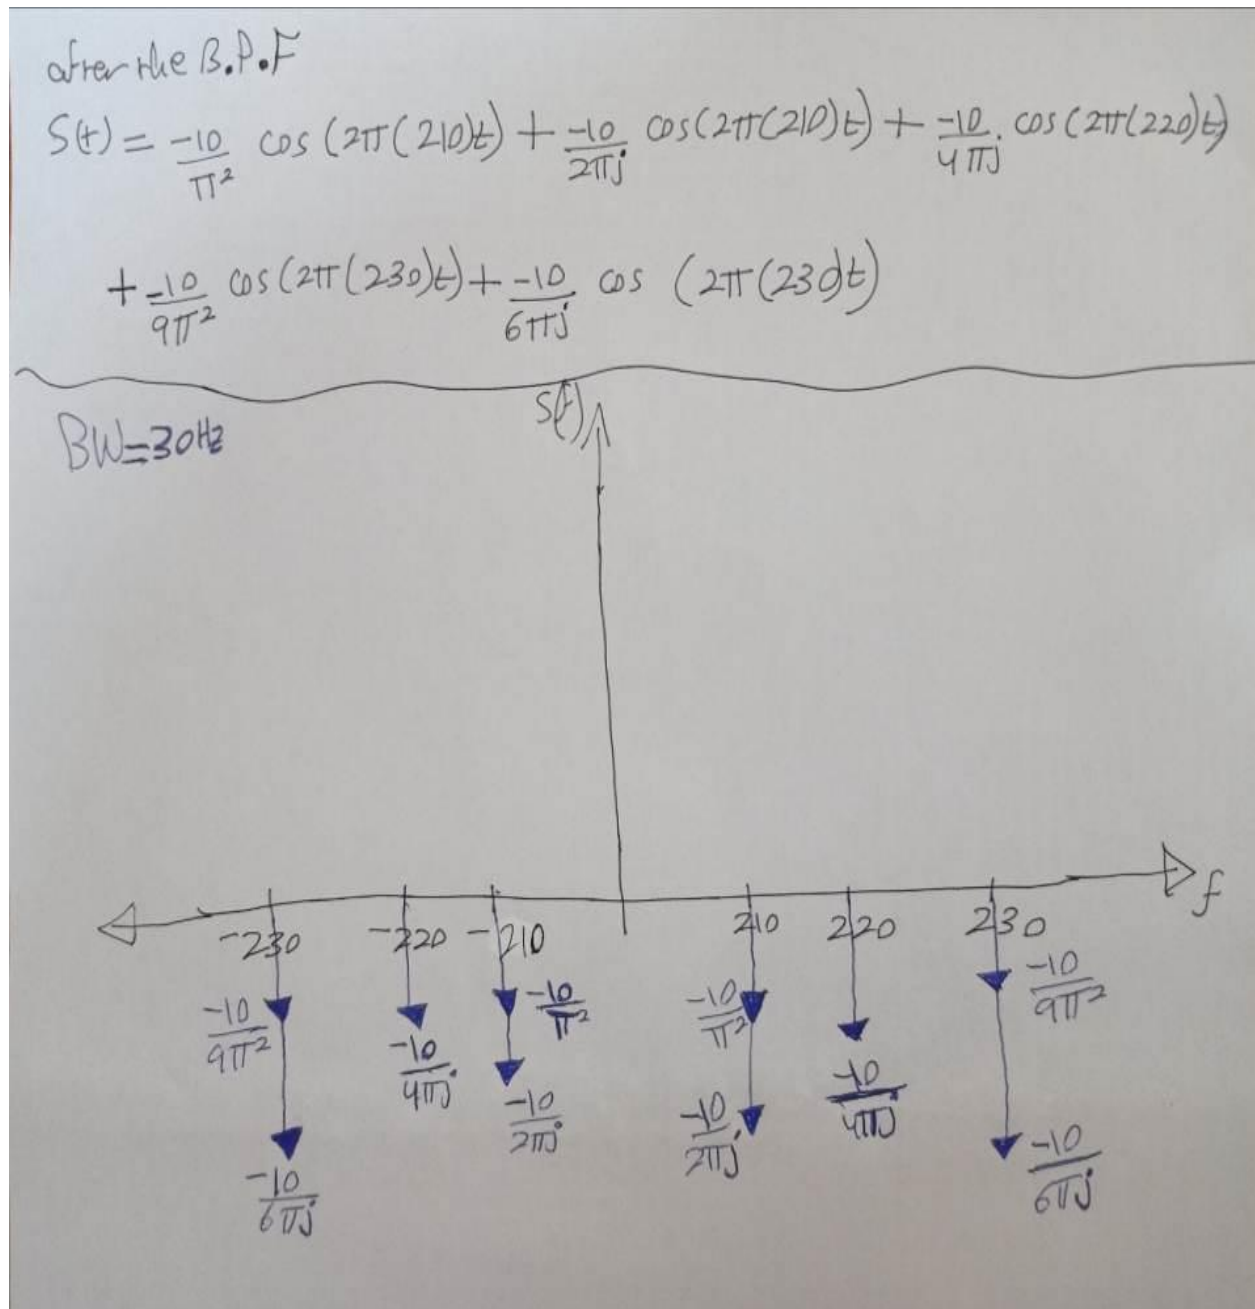 after the B.P.F
S(t) = -10/π² cos(2π(210)t) + -10/2πj cos(2π(210)t) + -10/4πj cos(2π(220)t)
+ -10/9π² cos(2π(230)t) + -10/6πj cos (2π(230)t)
S(f)
BW=30Hz
f
-230 -220 -210 210 220 230
-10/9π² -10/4πj -10/π² -10/π² -10/4πj -10/9π²
-10/6πj -10/2πj -10/2πj -10/6πj